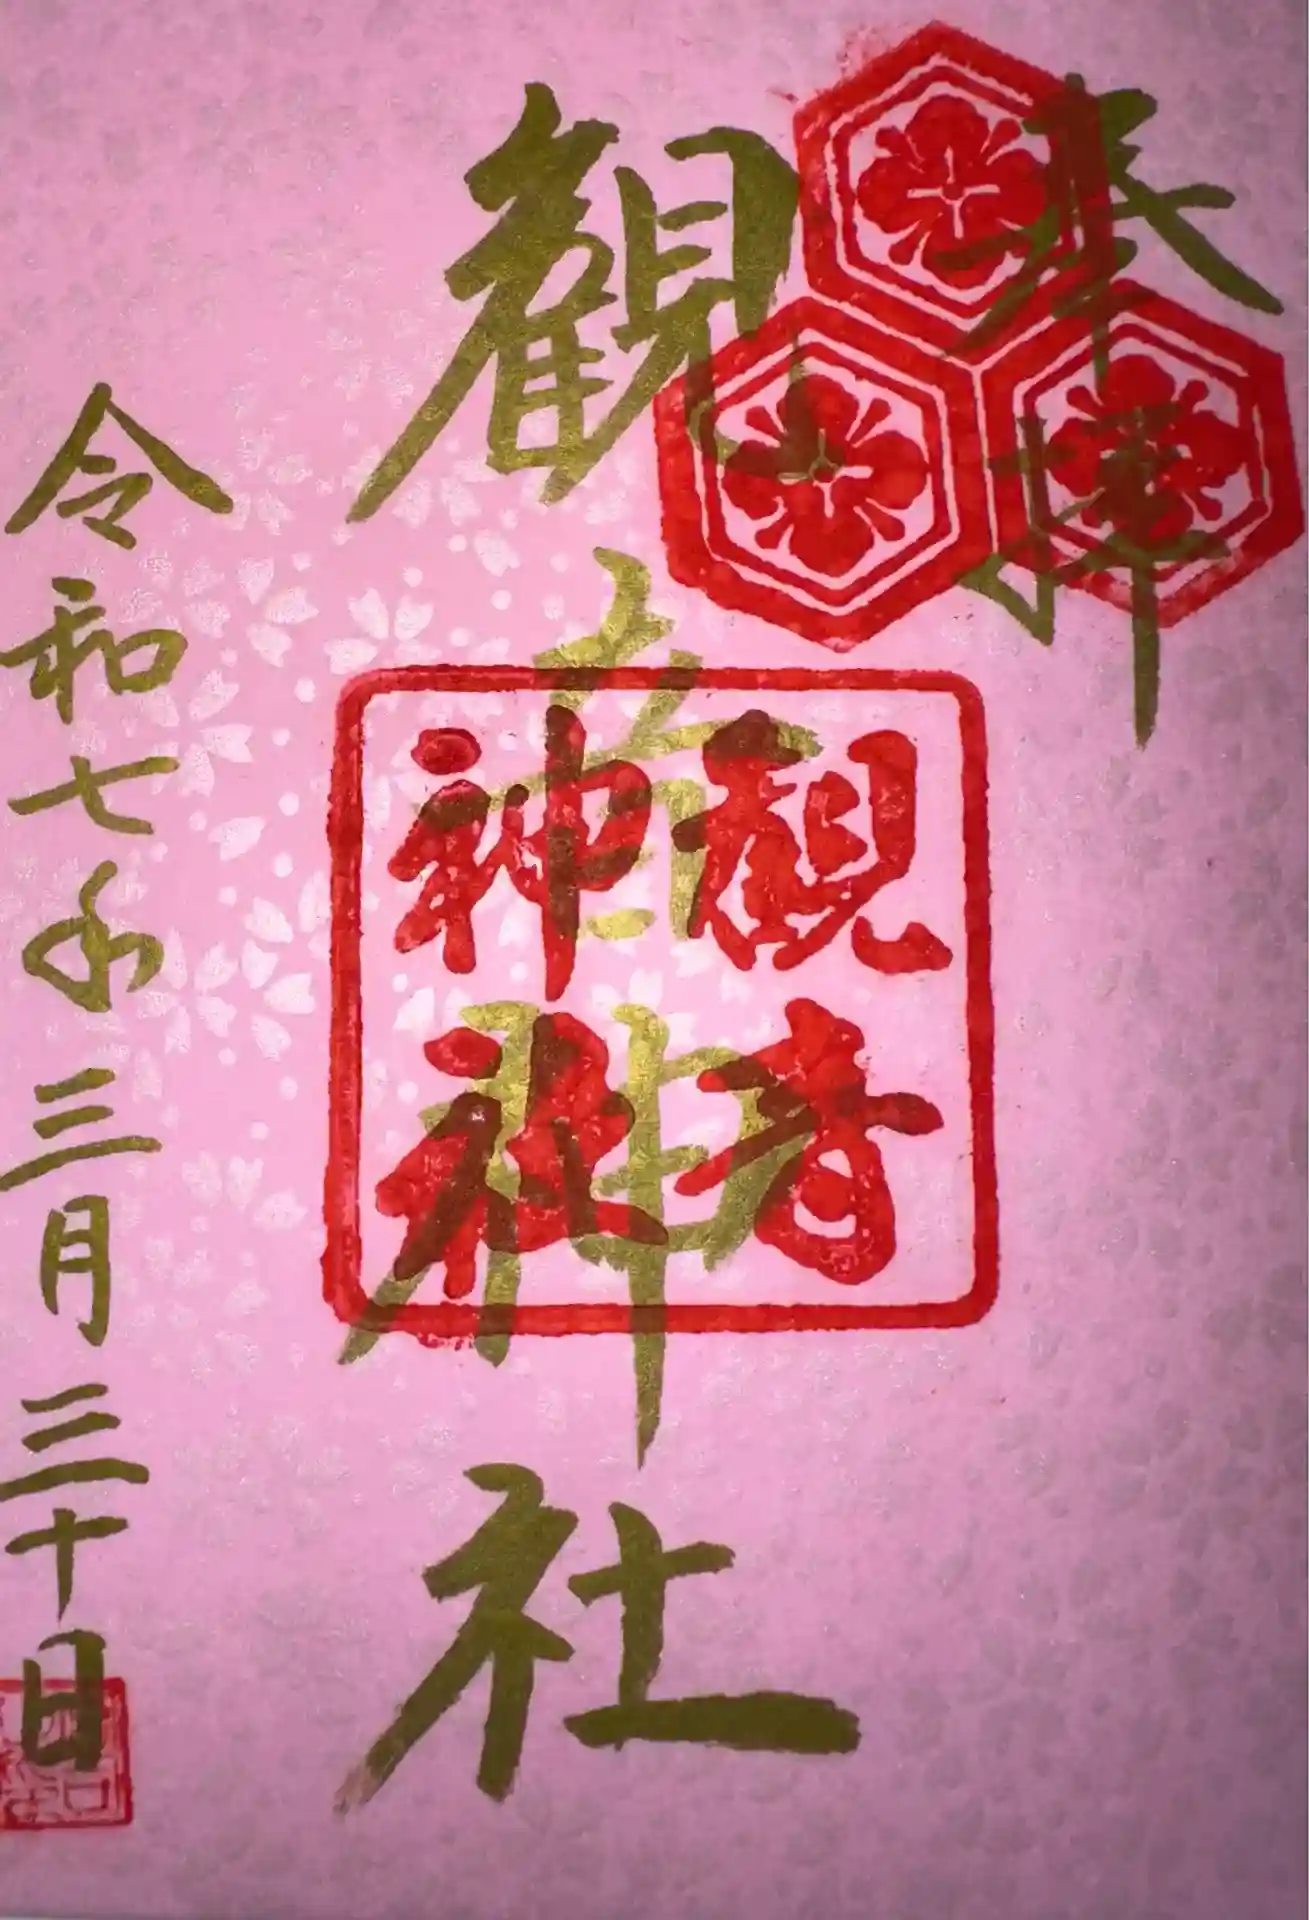 奉拝
観音神社
観音
神社
令和七年三月三十日